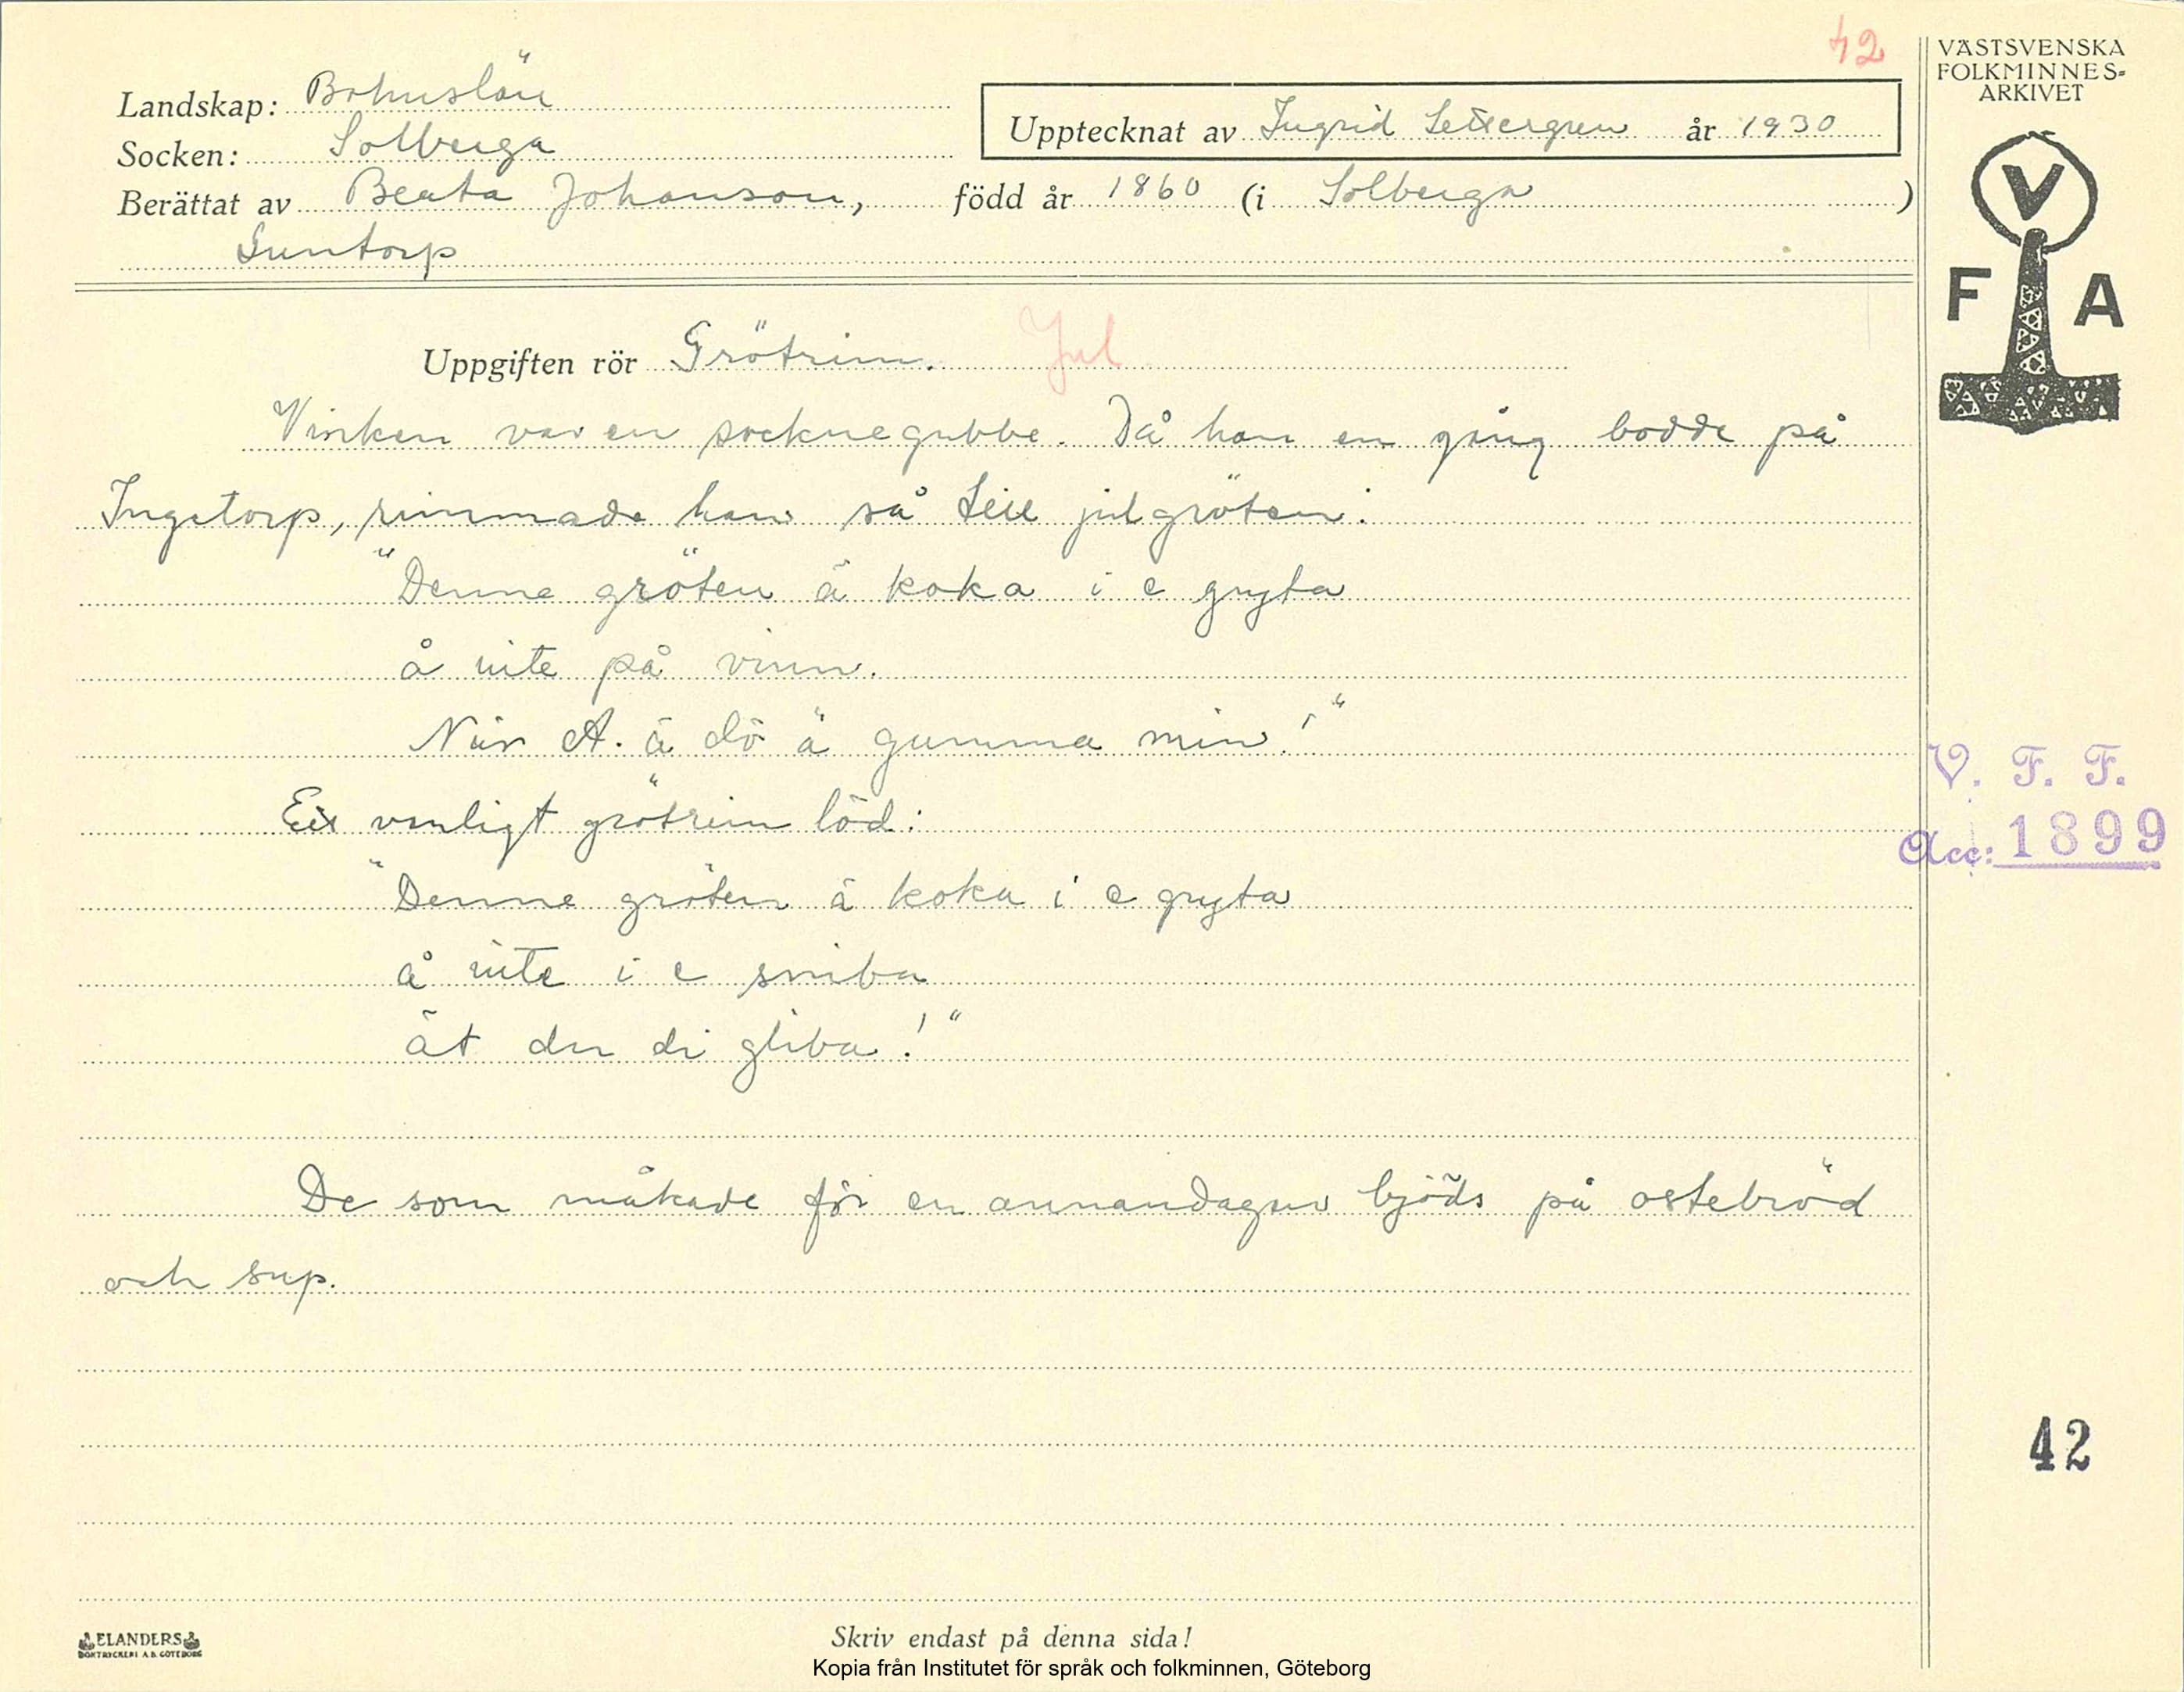 42
VÄSTSVENSKA
FOLKMINNES-
ARKIVET
Landskap: Bohuslän
Socken: Solberga
Upptecknat av Ingrid Settergren år 1930
Berättat av Beata Johanson, född år 1860 (i Solberga)
Suntorp
V
F A
Uppgiften rör Grötrim. Jul
Vinken var en socknegubbe. Då han en gång bodde på
Ingetorp, rimmade han så till julgröten:
"Denne gröten ä koka i e gryta
å inte på vinn.
När A. ä dö ä gumma min!"
Ett vanligt grötrim löd:
"Denne gröten ä koka i e gryta
å inte i e sniba
ät du di gliba!"
V. F. F.
Acc: 1899
De som måkade för en annandagen bjöds på ostebröd
och sup.
42
ELANDERS
BOKTRYCKERI A.B. GÖTEBORG
Skriv endast på denna sida!
Kopia från Institutet för språk och folkminnen, Göteborg